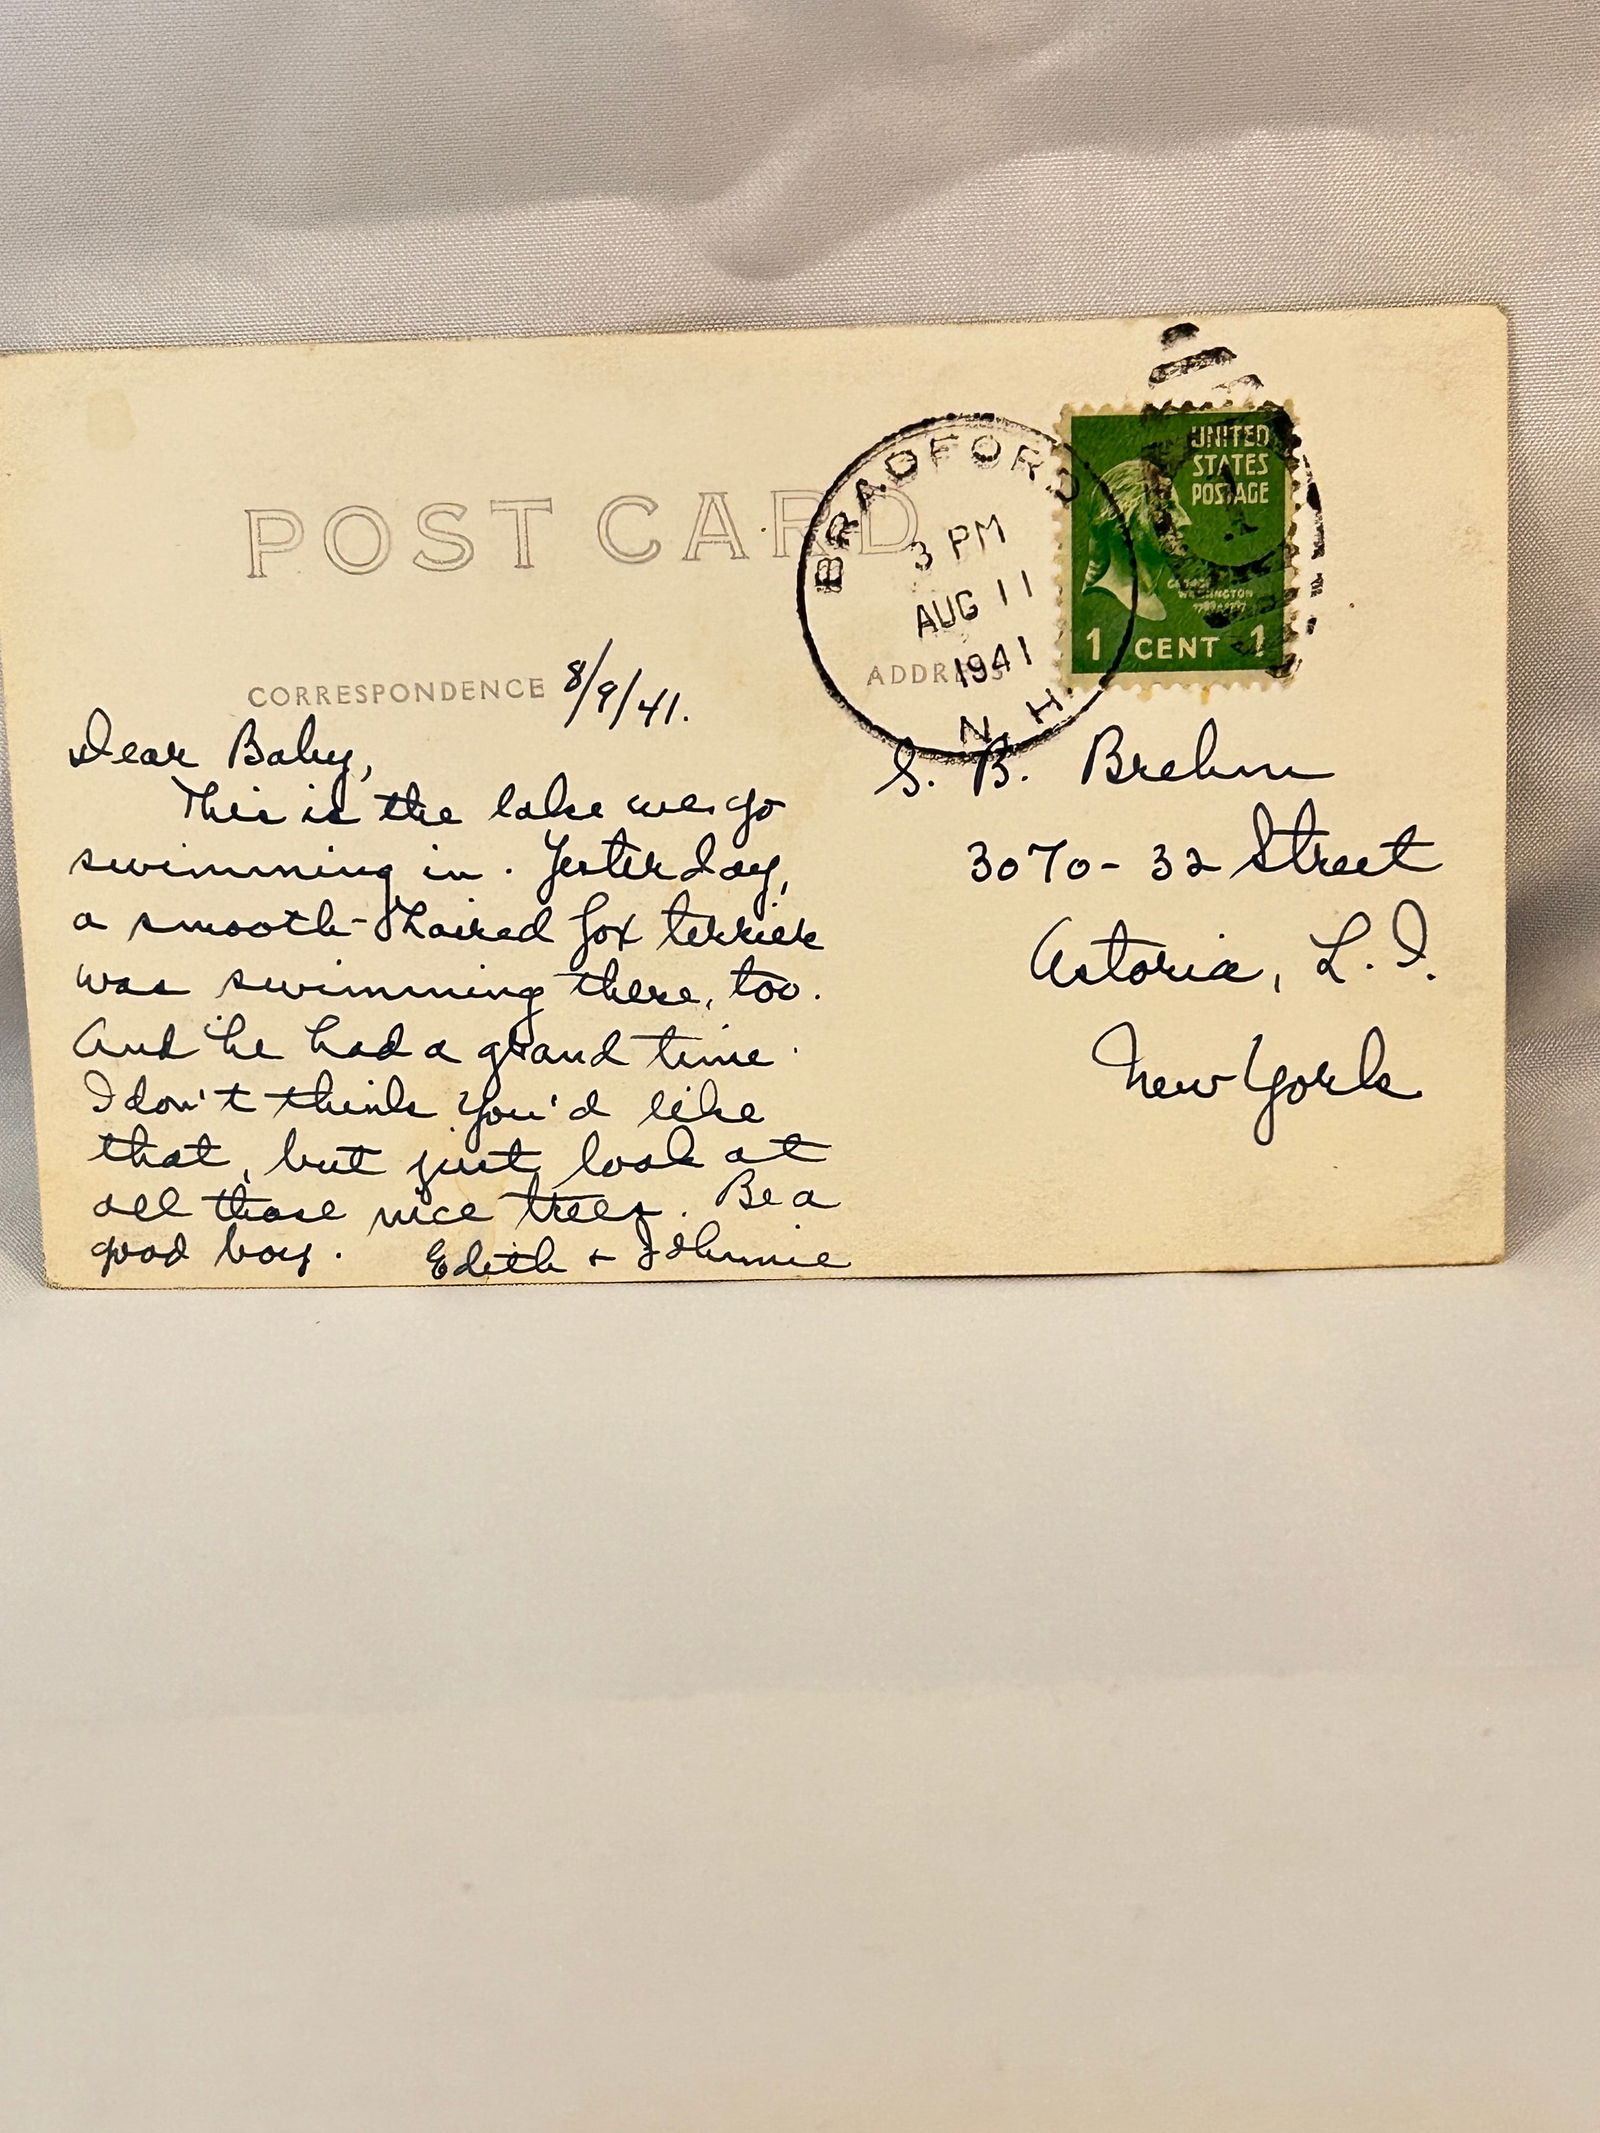 POST CARD
BRADFORD
3 PM
AUG 11
1941
N.H.
UNITED
STATES
POSTAGE
GEORGE
WASHINGTON
1 CENT 1
CORRESPONDENCE
8/9/41.
ADDRESS
Dear Baby,
This is the lake we go
swimming in. Yesterday,
a smooth-haired fox terrier
was swimming there, too.
And he had a grand time.
I don't think you'd like
that, but just look at
all those nice trees. Be a
good boy. Edith + Johnnie
S. B. Brehm
3070-32 Street
Astoria, L.I.
New York